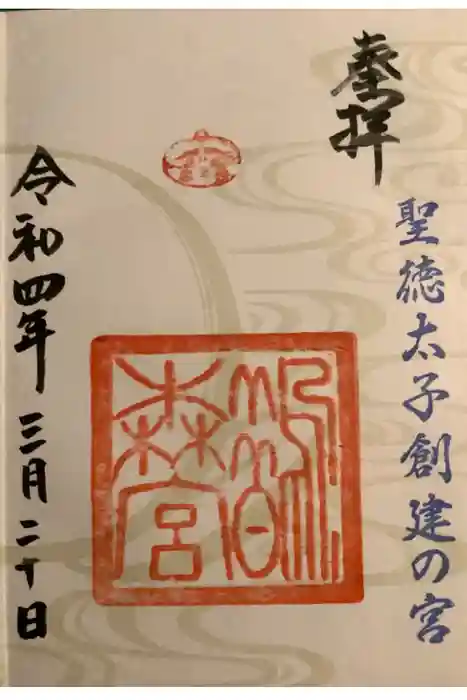 聖徳太子創建の宮
奉拝
鵲
森宮
令和四年三月二十日